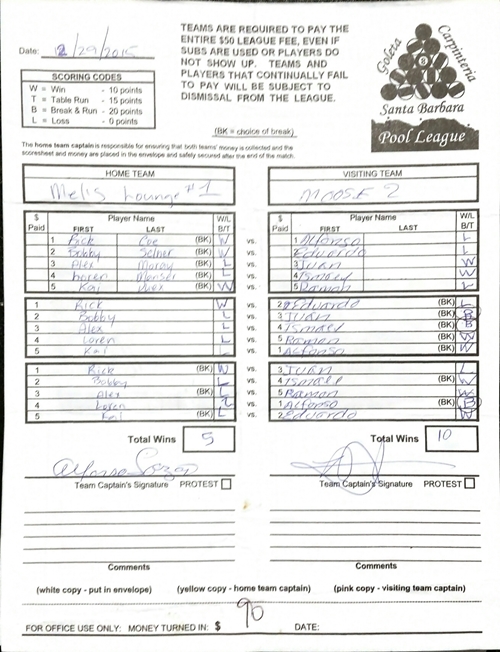 Date: 2/29/2015
TEAMS ARE REQUIRED TO PAY THE
ENTIRE $50 LEAGUE FEE, EVEN IF
SUBS ARE USED OR PLAYERS DO
NOT SHOW UP. TEAMS AND
PLAYERS THAT CONTINUALLY FAIL
TO PAY WILL BE SUBJECT TO
DISMISSAL FROM THE LEAGUE.
Goleta
Carpinteria
8
Santa Barbara
Pool League
SCORING CODES
W = Win - 10 points
T = Table Run - 15 points
B = Break & Run - 20 points
L = Loss - 0 points
(BK = choice of break)
The home team captain is responsible for ensuring that both teams' money is collected and the
scoresheet and money are placed in the envelope and safely secured after the end of the match.
HOME TEAM VISITING TEAM
Mel's Lounge #1 MOOSE 2
$ Paid Player Name FIRST LAST W/L B/T $ Paid Player Name FIRST LAST W/L B/T
1 Rick Coe (BK) W vs. 1 Alfonso L
2 Bobby (BK) W vs. 2 Eduardo L
3 Alex (BK) L vs. 3 JUAN W
4 Loren (BK) L vs. 4 Ismael W
5 Kai (BK) W vs. 5 Ramon L
1 Rick W vs. 2 Eduardo (BK) L
2 Bobby L vs. 3 JUAN (BK) B
3 Alex L vs. 4 Ismael (BK) B
4 Loren L vs. 5 Ramon (BK) W
5 Kai L vs. 1 Alfonso (BK) W
1 Rick (BK) W vs. 3 JUAN L
2 Bobby L vs. 4 Ismael (BK) W
3 Alex (BK) L vs. 5 Ramon W
4 Loren L vs. 1 Alfonso (BK) B
5 Kai (BK) L vs. 2 Eduardo W
Total Wins 5 Total Wins 10
Team Captain's Signature PROTEST Team Captain's Signature PROTEST
Comments Comments
(white copy - put in envelope) (yellow copy - home team captain) (pink copy - visiting team captain)
FOR OFFICE USE ONLY: MONEY TURNED IN: $ 90 DATE: